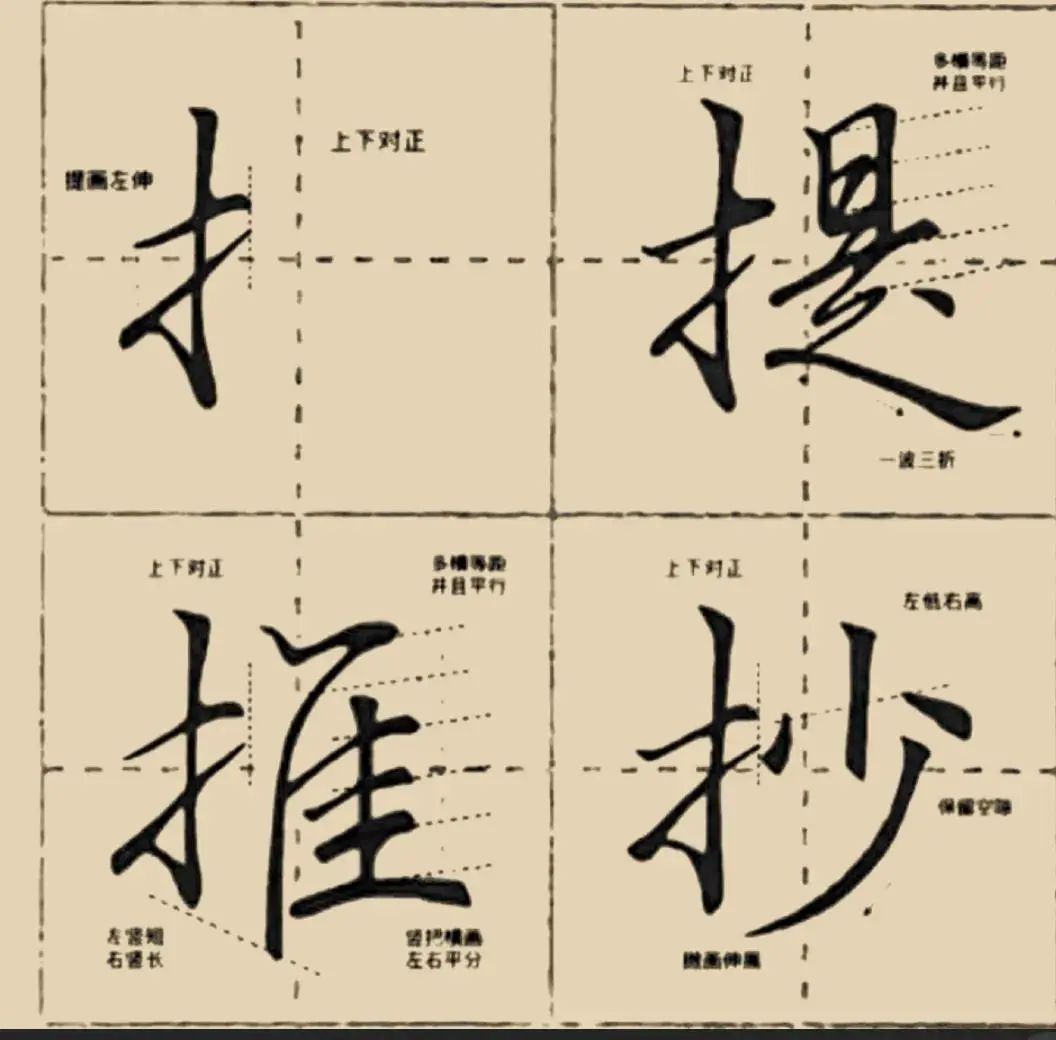 扌
提画左伸
上下对正
提
上下对正
多横等距
并且平行
一波三折
推
上下对正
多横等距
并且平行
左竖短
右竖长
竖把横画
左右平分
抄
上下对正
左低右高
保留空隙
撇画伸展